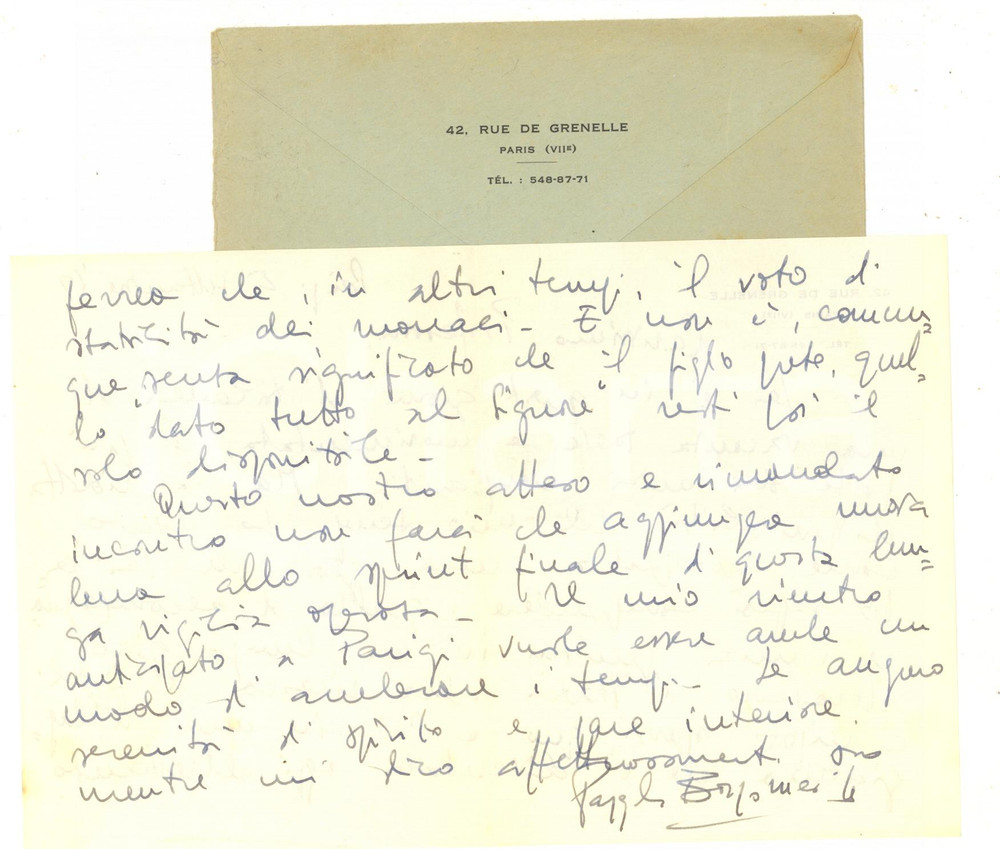 42, RUE DE GRENELLE
PARIS (VIIE)
TÉL. : 548-87-71
ferrea che, in altri tempi, il voto di
stabilità dei monaci - E non è, comun=
que, senza significato che "il figlio prete, quel=
lo "dato tutto al Signore" resti poi il
solo disponibile -
Questo nostro atteso e rimandato
incontro non farà che aggiungere nuova
lena allo sprint finale di questa lun=
ga vigilia operosa - Il mio rientro
anticipato a Parigi vuole essere anche un
modo di accelerare i tempi - Le auguro
serenità di spirito e pace interiore,
mentre mi dico affettuosamente suo